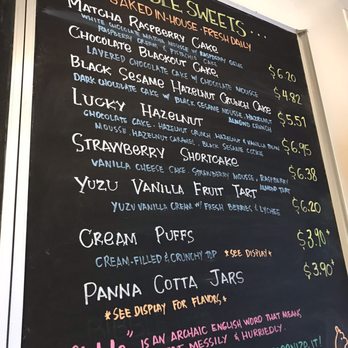 BLE SWEETS...
BAKED IN-HOUSE - FRESH DAILY
MATCHA RASPBERRY CAKE
WHITE CHOCOLATE MATCHA MOUSSE W/ RASPBERRY
RASPBERRY CREAM & PISTACHIO CAKE $6.20
CHOCOLATE BLACKOUT CAKE
LAYERED CHOCOLATE CAKE W/ CHOCOLATE MOUSSE $4.82
BLACK SESAME HAZELNUT CRUNCH CAKE
DARK CHOCOLATE CAKE W/ BLACK SESAME MOUSSE, HAZELNUT ALMOND CRUNCH $5.51
LUCKY HAZELNUT
CHOCOLATE CAKE, HAZELNUT CRUNCH, HAZELNUT & VANILLA
MOUSSE, HAZELNUT CARAMEL, BLACK SESAME COOKIE $6.95
STRAWBERRY SHORTCAKE
VANILLA CHEESE CAKE, STRAWBERRY MOUSSE, RASPBERRY $6.38
YUZU VANILLA FRUIT TART ALMOND TART
YUZU VANILLA CREAM W/ FRESH BERRIES & LYCHEE $6.20
CREAM PUFFS $3.90+
CREAM-FILLED & CRUNCHY TOP *SEE DISPLAY*
PANNA COTTA JARS $3.90+
*SEE DISPLAY FOR FLAVORS*
" IS AN ARCHAIC ENGLISH WORD THAT MEANS
MESSILY & HURRIEDLY.
IT!